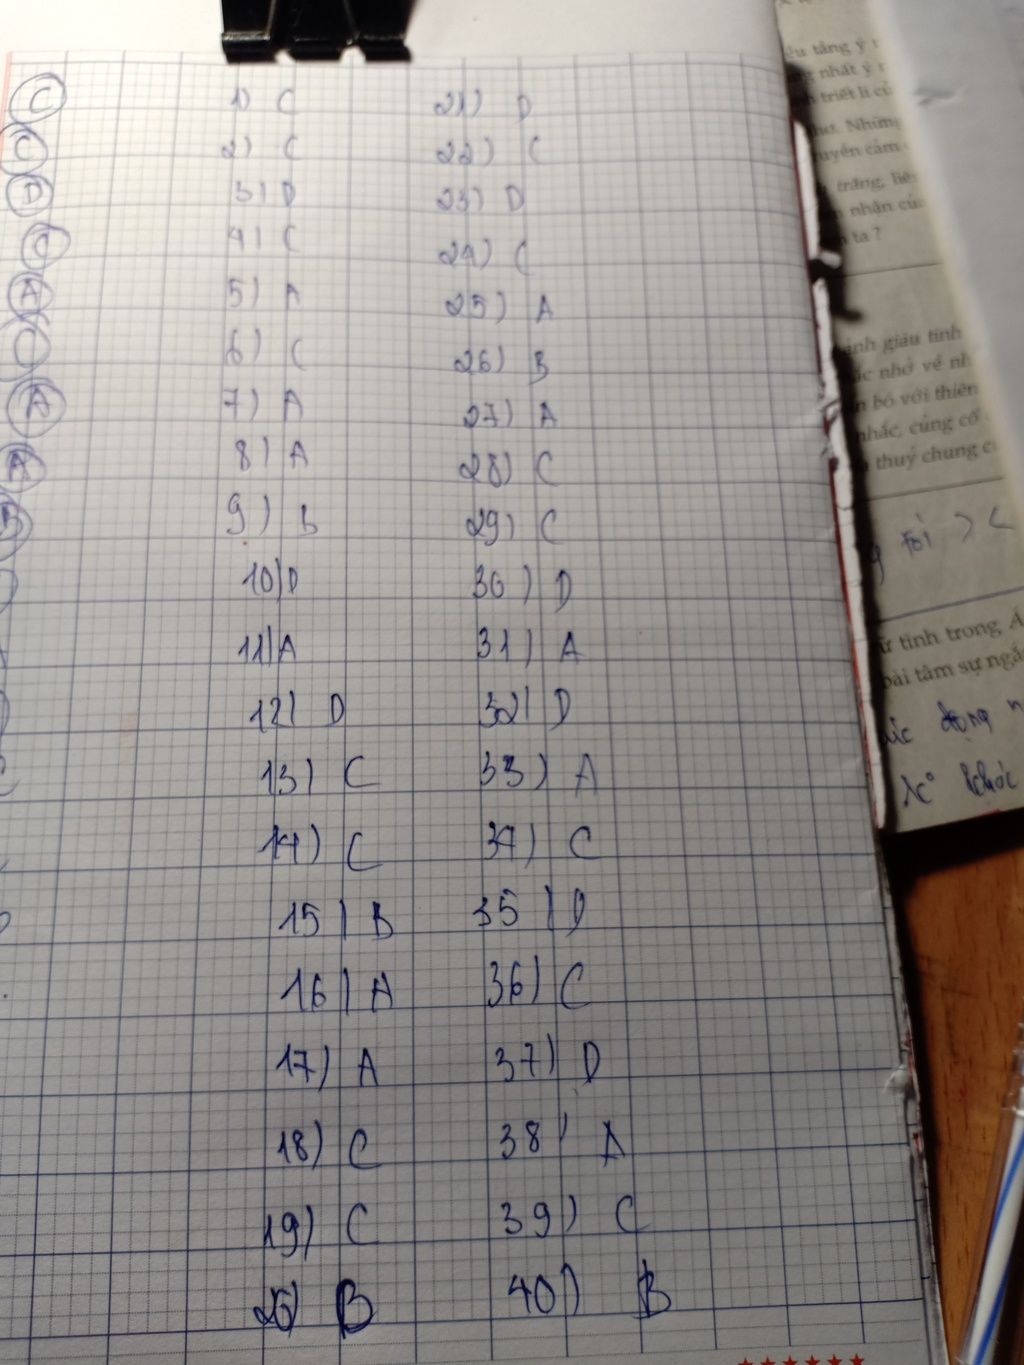 C
C
D
C
A
C
A
A
B
1) C
2) C
3) D
4) C
5) A
6) C
7) A
8) A
9) B
10) D
11) A
12) D
13) C
14) C
15) B
16) A
17) A
18) C
19) C
20) B
21) D
22) C
23) D
24) C
25) A
26) B
27) A
28) C
29) C
30) D
31) A
32) D
33) A
34) C
35) D
36) C
37) D
38) A
39) C
40) B
tăng ý
nhất ý
triết lí củ
Những
cảm
trăng, liê
nhân củ
ta ?
giàu tính
nhớ về nh
bó với thiên
nhắc, củng cố
thuỷ chung c
rồi > <
tình trong Á
bài tâm sự ngắ
động
khác